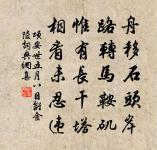 舟移石頭岸
路轉馬鞍磯
惟有長干塔
相看未忍違
項安世五月八日朝金
陵詞典網集